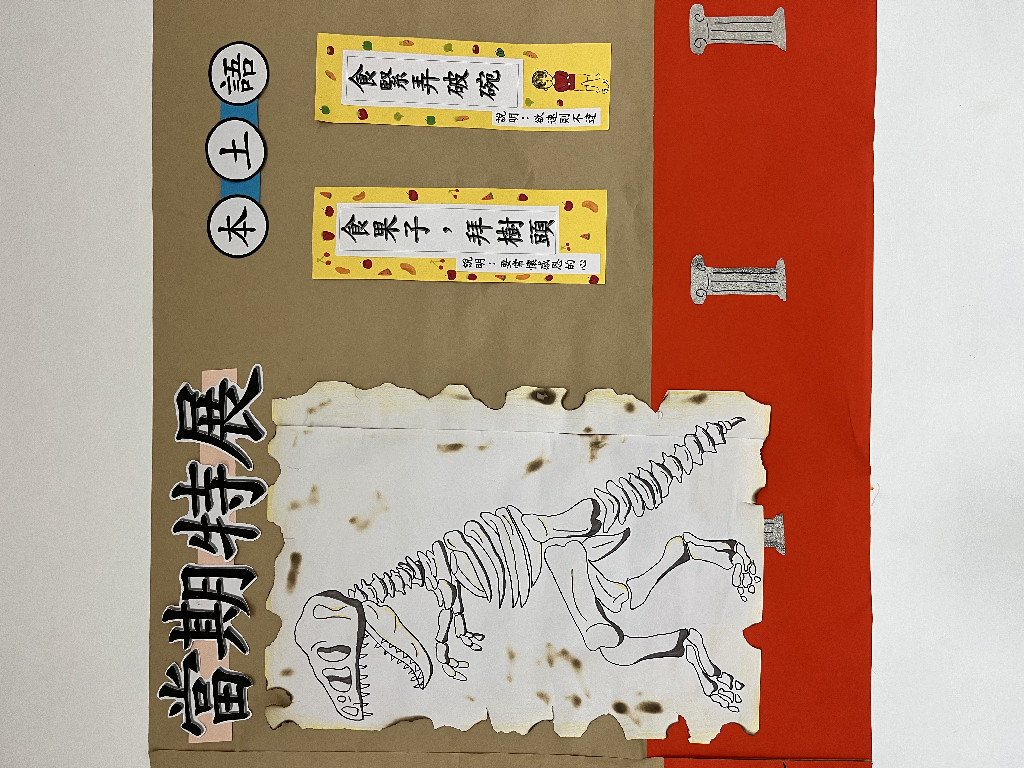 當期特展
本土語
食緊弄破碗
說明：欲速則不達
食果子，拜樹頭
說明：要常懷感恩的心